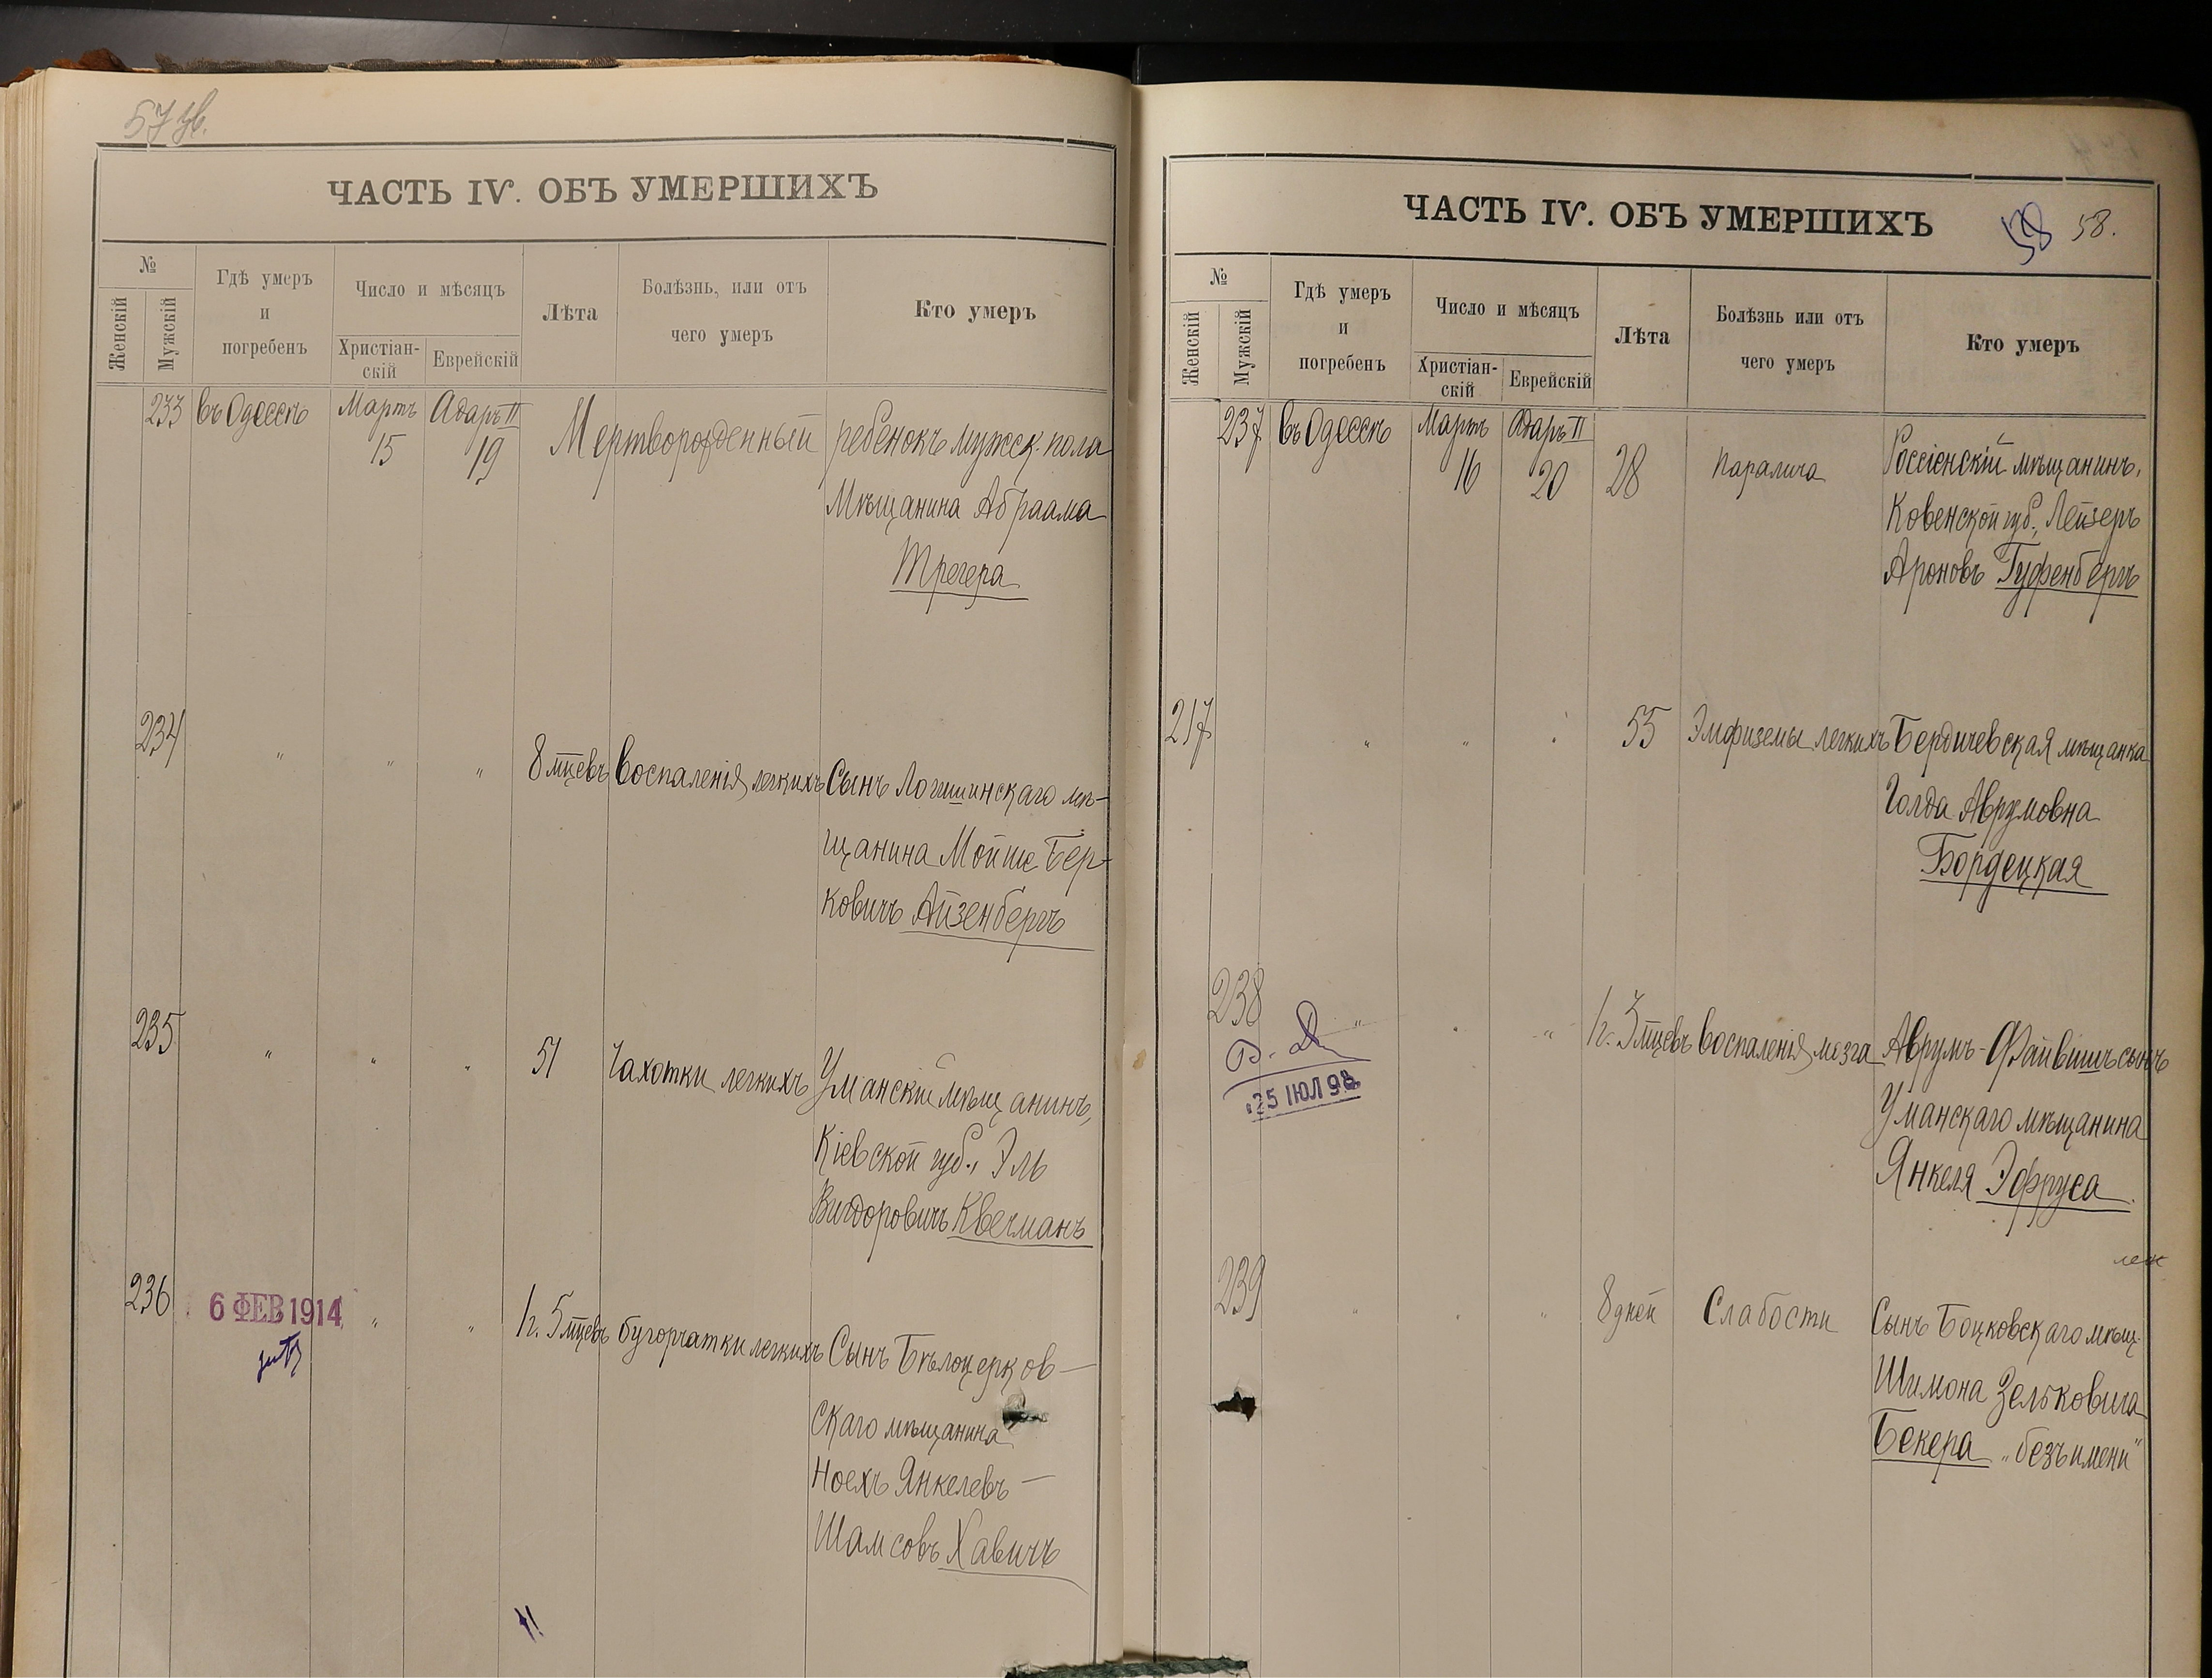 57 об.
ЧАСТЬ IV. ОБЪ УМЕРШИХЪ
№
Женскій
Мужскій
Гдѣ умеръ
и
погребенъ
Число и мѣсяцъ
Христіан-
скій
Еврейскій
Лѣта
Болѣзнь, или отъ
чего умеръ
Кто умеръ
233 въ Одессѣ Мартъ 15 Адаръ II 19 Мертворожденный ребенокъ мужск. пола
Мѣщанина Абраама
Трегера
234 " " " 8 мцевъ Воспаленія легкихъ Сынъ Логишинскаго мѣ-
щанина Мойше Бер-
ковичъ Айзенбергъ
235 " " " 51 Чахотки легкихъ Уманскій мѣщанинъ,
Кіевской губ., Эль
Вигдоровичъ Квечманъ
236 6 ФЕВ 1914 " " 1 г. 5 мцевъ бугорчатки легкихъ Сынъ Бѣлоцерков-
скаго мѣщанина
Ноехъ Янкелевъ —
Шамсовъ Хавичъ
ЧАСТЬ IV. ОБЪ УМЕРШИХЪ
58 58.
№
Женскій
Мужскій
Гдѣ умеръ
и
погребенъ
Число и мѣсяцъ
Христіан-
скій
Еврейскій
Лѣта
Болѣзнь или отъ
чего умеръ
Кто умеръ
237 въ Одессѣ Мартъ 16 Адаръ II 20 28 Паралича Россіенскій мѣщанинъ,
Ковенской губ., Лейзеръ
Ароновъ Гуфенбергъ
217 " " " 55 Эмфиземы легкихъ Бердичевская мѣщанка
Голда Аврумовна
Бордецкая
238 " " " 1 г. 3 мцевъ Воспаленія мозга Аврумъ-Файвишъ сынъ
25 ІЮЛ 98
Уманскаго мѣщанина
Янкеля Эфруса
239 " " " 8 дней Слабости Сынъ Боцковскаго мѣщ.
Шимона Зельковича
Бекера „безъ имени"